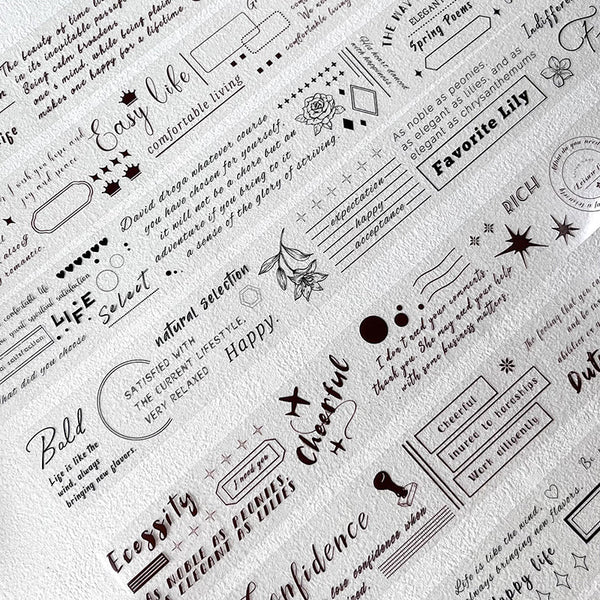 The beauty of time lies
in its inevitable passage.
Being calm broadens
one's mind, while being plain
makes one happy for a lifetime
Easy life
comfortable living
I wish you hope and
joy and peace
romantic.
David droga whatever course
you have chosen for yourself,
it will not be a chore but an
adventure if you bring to it
a sense of the glory of striving.
ELEGANT
Spring Poems
As noble as peonies
as elegant as lilies, and as
elegant as chrysanthemums
Favorite Lily
Indifferent
expectation
happy
acceptance
RICH
LIFE
Select
what did you choose
natural selection
Happy.
SATISFIED WITH
THE CURRENT LIFESTYLE,
VERY RELAXED
Bold
Life is like the
wind, always
bringing new flavors.
I don't read your comments,
thank you. She may need your help
with some business matters.
The feeling that you
Cheerful
Cheerful
inured to hardships
Work diligently
Ecessity
I need you
AS NOBLE AS PEONIES
AS ELEGANT AS LILIES
Confidence
love confidence when
Life is like the wind,
always bringing new flavors.
happy life